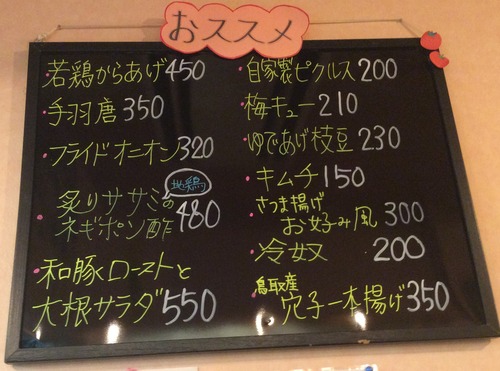 おススメ
若鶏からあげ450
手羽唐350
フライドオニオン320
地鶏
炙りササミの
ネギポン酢480
和豚ローストと
大根サラダ550
自家製ピクルス200
梅キュー210
ゆであげ枝豆230
キムチ150
さつま揚げ
お好み風300
冷奴200
鳥取産
穴子一本揚げ350